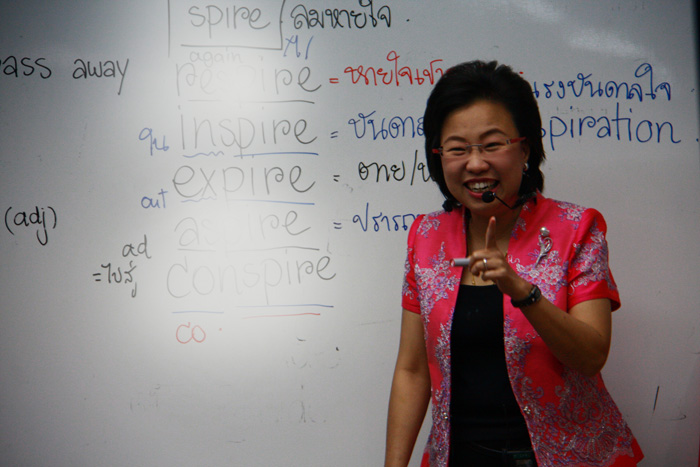 spire / ลมหายใจ.
again
pass away respire = หายใจเข้า แรงบันดาลใจ
ใน inspire = บันดาล spiration.
out expire = ตาย/
(adj) aspire = ปรารถ
ad
=ไปสู่ conspire
co